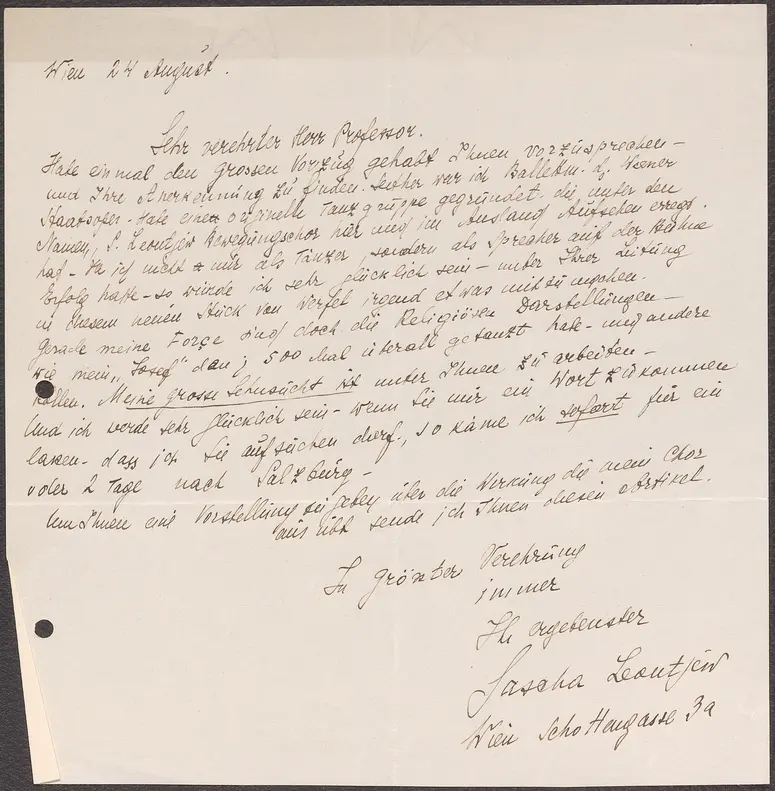 Wien 24 August.
Sehr verehrter Herr Professor.
Habe einmal den grossen Vorzug gehabt Ihnen vorzusprechen –
und Ihre Anerkennung zu finden. Seither war ich Ballettm. d. Wiener
Staatsoper – Habe einen originelle Tanzgruppe gegründet, die unter den
Namen, S. Leontjew Bewegungschor hier und im Ausland Aufsehen erregt
hat – Da ich nicht nur als Tänzer sondern als Sprecher auf der Bühne
Erfolg hatte – so würde ich sehr glücklich sein – unter Ihrer Leitung
in diesem neuen Stück von Werfel irgend etwas mitzumachen.
Gerade meine Force sind doch die Religiösen Darstellungen –
wie mein „Josef" den ich 500 Mal überall getanzt habe – und andere
Rollen. Meine grosse Sehnsucht ist unter Ihnen zu arbeiten –
Und ich werde sehr glücklich sein – wenn Sie mir ein Wort zukommen
lassen – dass ich Sie aufsuchen darf, so käme ich sofort für ein
oder 2 Tage nach Salzburg –
Um Ihnen eine Vorstellung zu geben über die Wirkung die mein Chor
ausübt sende ich Ihnen diesen Artikel.
In grösster Verehrung
immer
Ihr ergebenster
Sascha Leontjew
Wien Schottengasse 3a